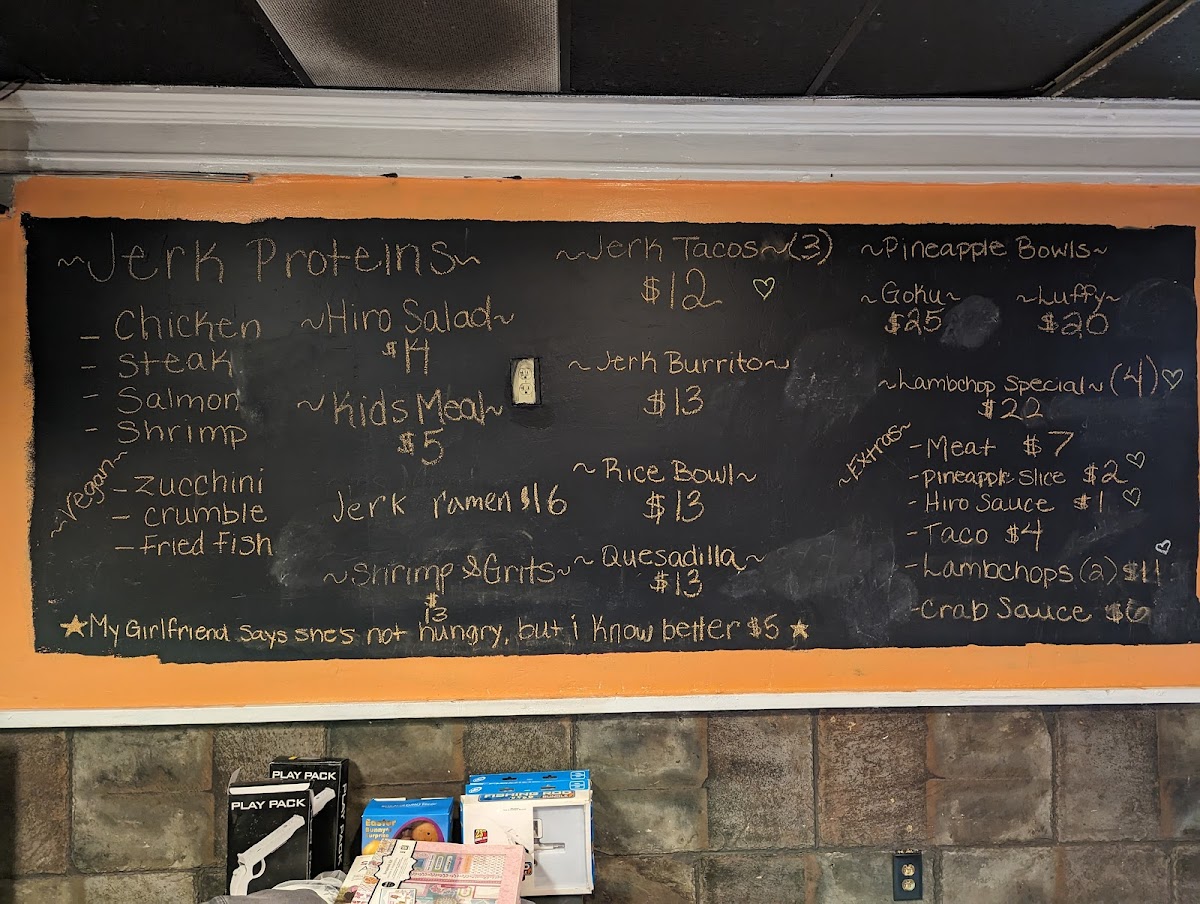 ~Jerk Proteins~
- Chicken
- Steak
- Salmon
- Shrimp
~Vegan~
- Zucchini
- crumble
- Fried Fish
~Hiro Salad~
$14
~Kids Meal~
$5
Jerk ramen $16
~Shrimp & Grits~
$13
~Jerk Tacos~(3)
$12
~Jerk Burrito~
$13
~Rice Bowl~
$13
~Quesadilla~
$13
~Pineapple Bowls~
~Goku~
$25
~Luffy~
$20
~Lambchop Special~ (4)
$22
~Extras~
-Meat $7
-pineapple slice $2
-Hiro Sauce $1
-Taco $4
-Lambchops (2) $11
-Crab Sauce $6
My Girlfriend says she's not hungry, but i know better $5
PLAY PACK
PLAY PACK
Easter
Bunny
Surprise
FISHING ROD